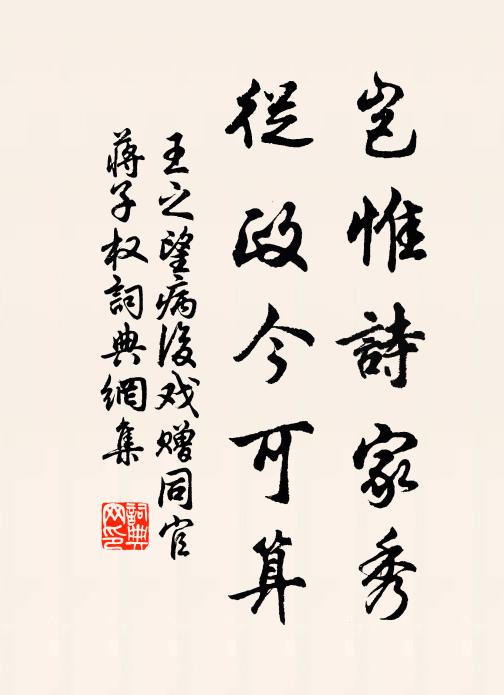 岂惟詩家秀
從政今可算
王之望病後戏赠同官
蒋子权詞典網集
詞典网印